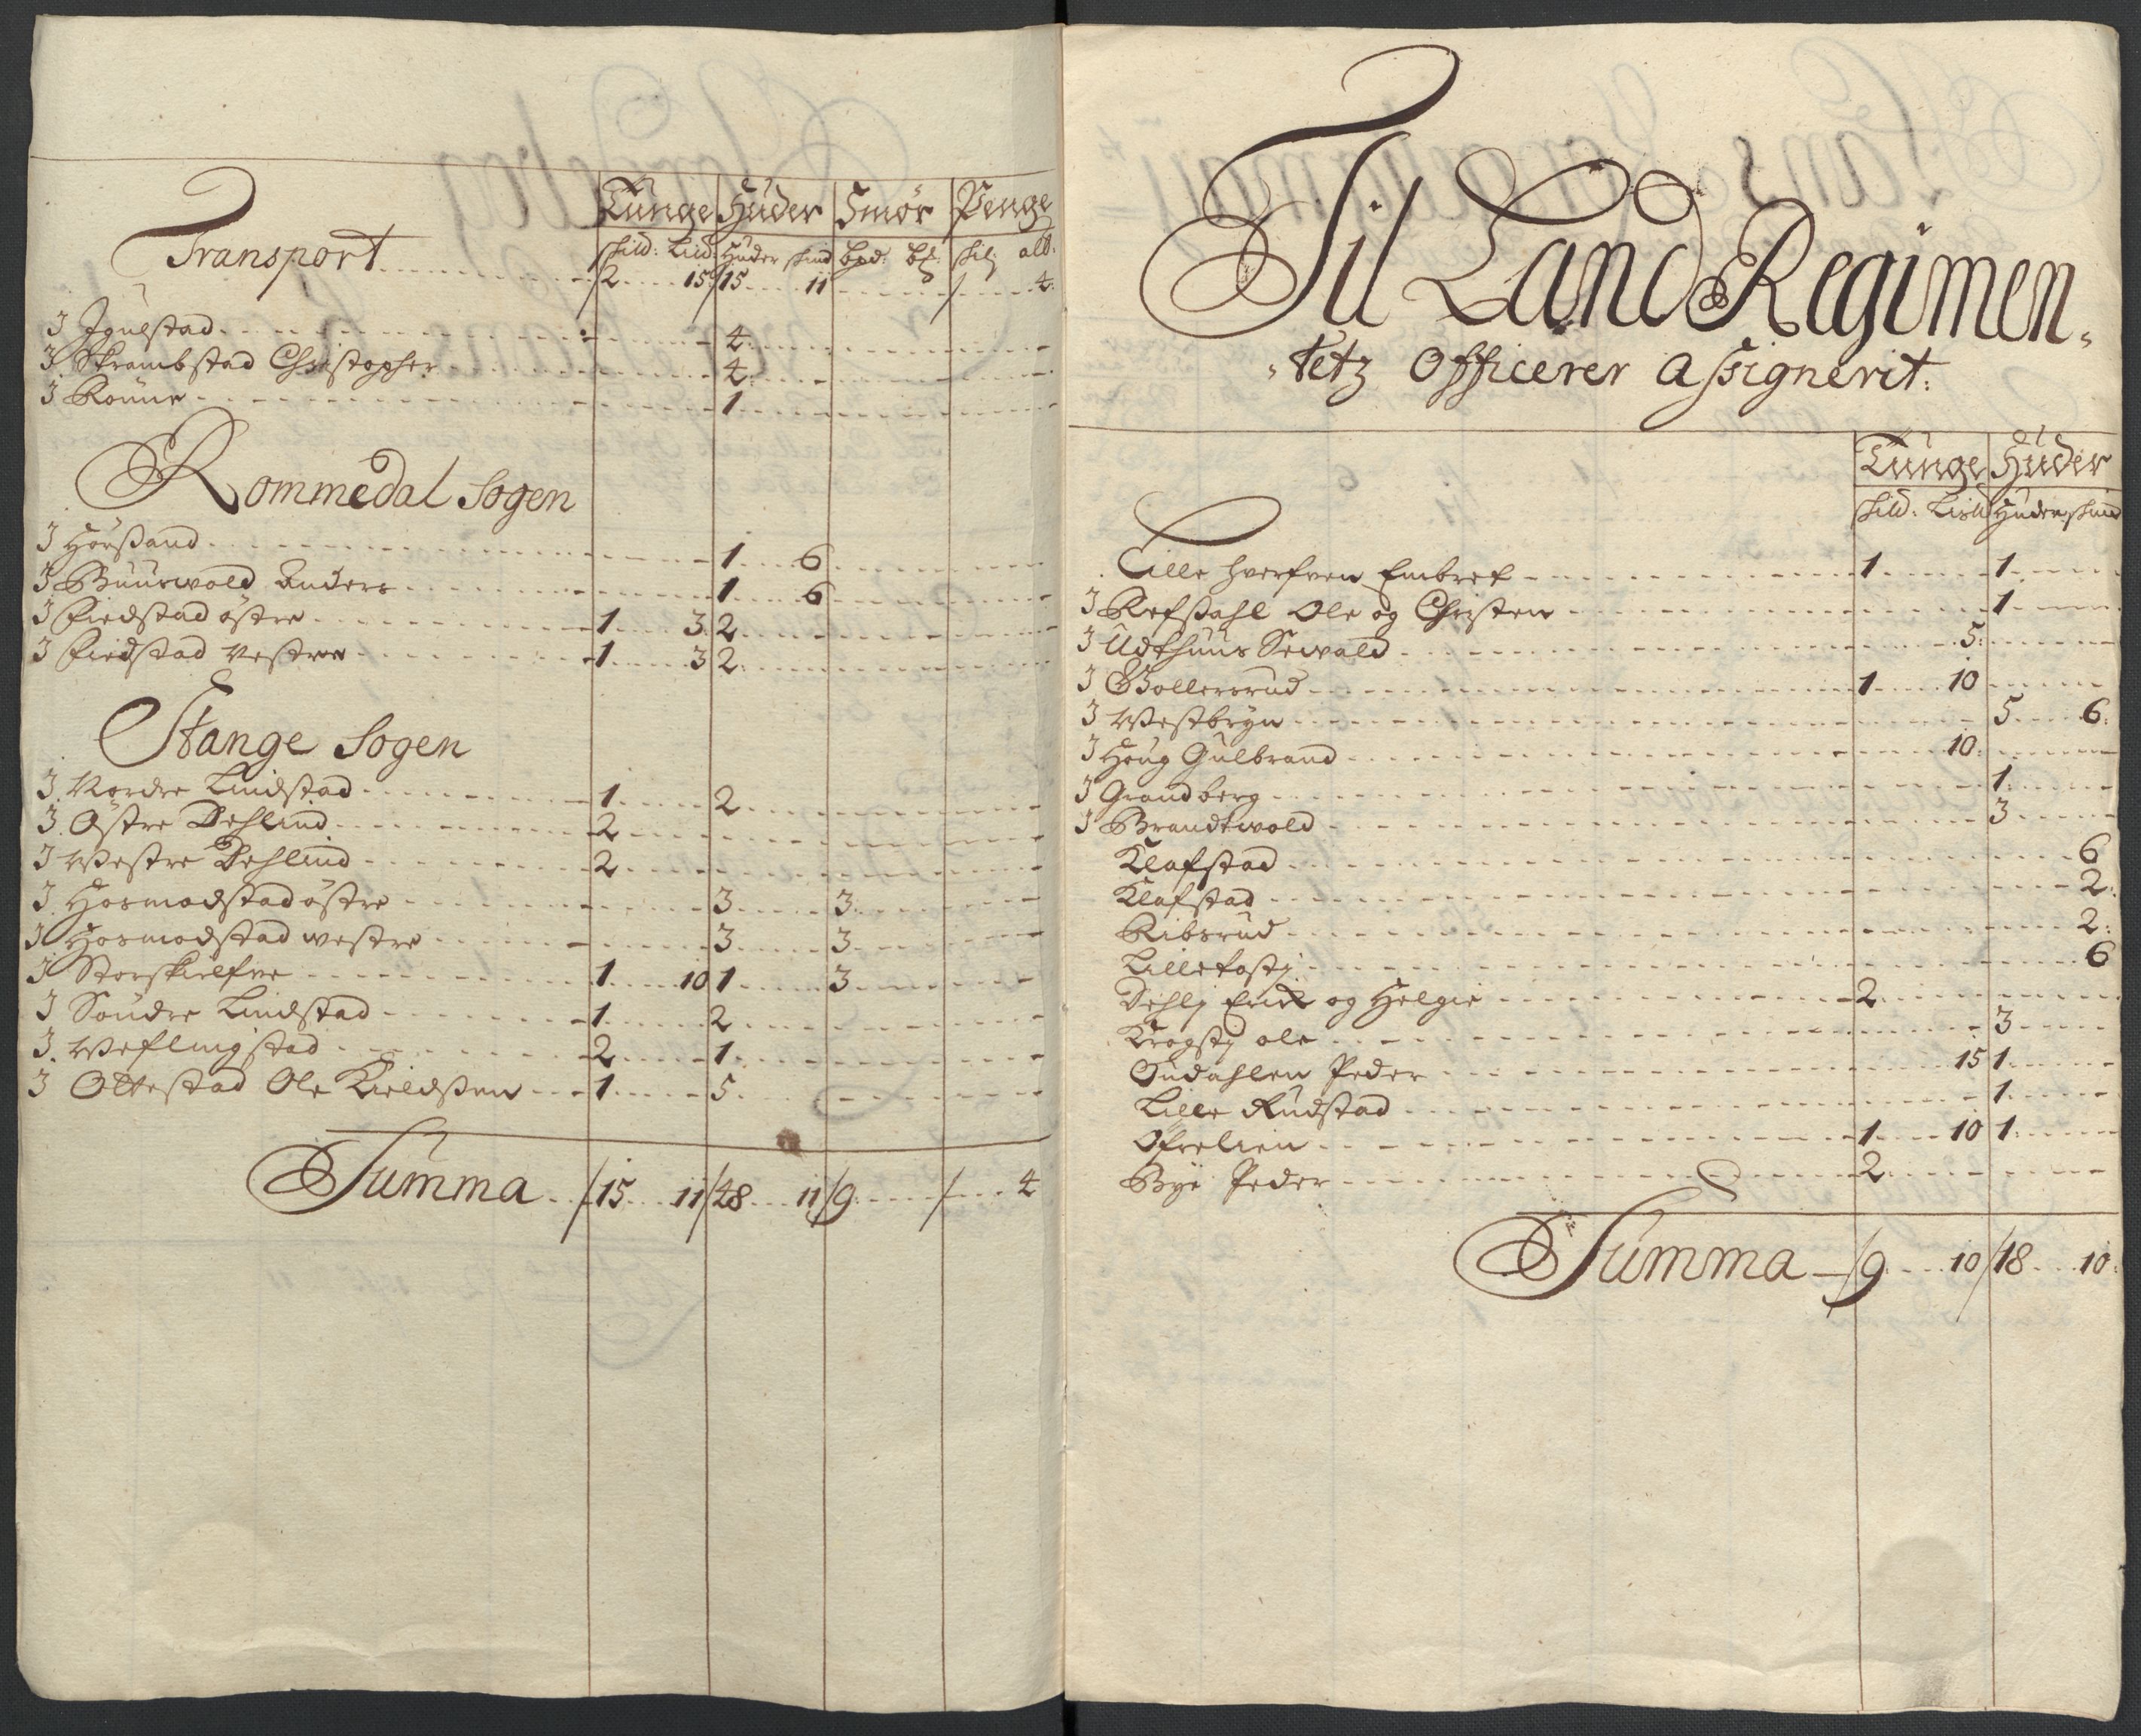 Tunge Huder Smör Penge
Skild: Lisd: Huder skind bpd: bl: skil: alb:
Transport 2 15 15 11 4
J Igulstad 4
J Skrambstad Christopher 4
J Rönne 1
Rommedal Sogen
J Hörsand 1 6
J Buurwold Anders 1 6
J Fiedstad östre 1 3 2
J Fiedstad Vestre 1 3 2
Stange Sogen
J Nordre Lindstad 1 2
J Östre Dehlind 2
J Westre Dehlind 2
J Hosmodstad östre 3 3
J Hosmodstad westre 3 3
J Storskielfve 1 10 1 3
J Söndre Lindstad 1 2
J Weflingstad 2 1
J Ottestad Ole Kieldsen 1 5
Summa 15 11 48 11 9 4
Til Land Regimen-
-tetz Officerer Assignerit:
Tunge Huder
Skild: Lisd Huder skind
Lille hverfven Embret 1 1
J Refsahl Ole og Christen 1
J Udthuus Sewald 5
J Bollerrud 1 10
J Westbryn 5 6
J Houg Gulbrand 10
J Grandberg 1
J Brandtwold 3
Klafstad 6
Klafstad 2
Ribsrud 2
Lilletostj 6
Dehlj Erick og Helgie 2
Krogstj ole 3
Oudahlen Peder 15 1
Lille Rudstad 1
Ofrelien 1 10 1
Bye Peder 2
Summa 9 10 18 10